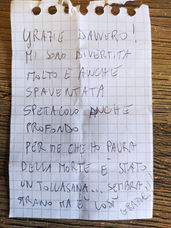 GRAZIE DAVVERO!
MI SONO DIVERTITA
MOLTO E ANCHE
SPAVENTATA
SPETTACOLO ANCHE
PROFONDO
PER ME CHE HO PAURA
DELLA MORTE È STATO
UN TOCCASANA... SEMBRA
STRANO MA È COSÌ
GRAZIE!!